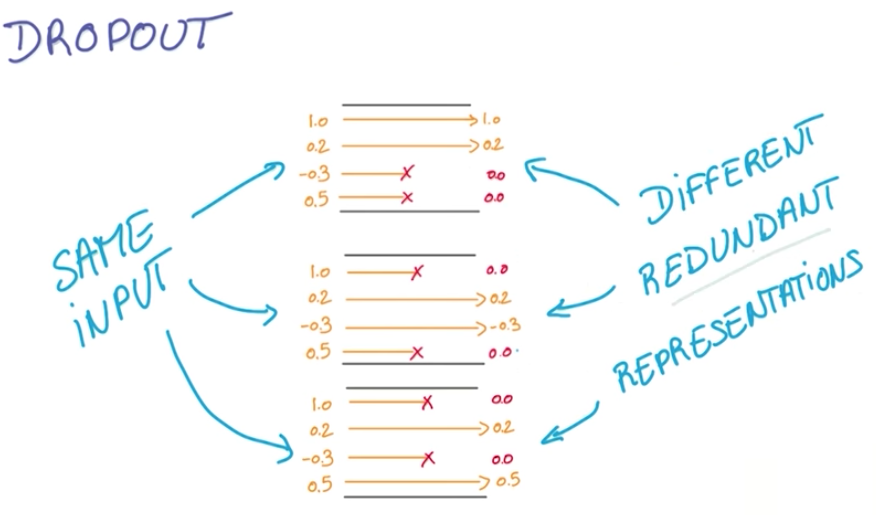 DROPOUT
SAME
INPUT
1.0 1.0
0.2 0.2
-0.3 x 0.0
0.5 x 0.0
1.0 x 0.0
0.2 0.2
-0.3 -0.3
0.5 x 0.0
1.0 x 0.0
0.2 0.2
-0.3 x 0.0
0.5 0.5
DIFFERENT
REDUNDANT
REPRESENTATIONS